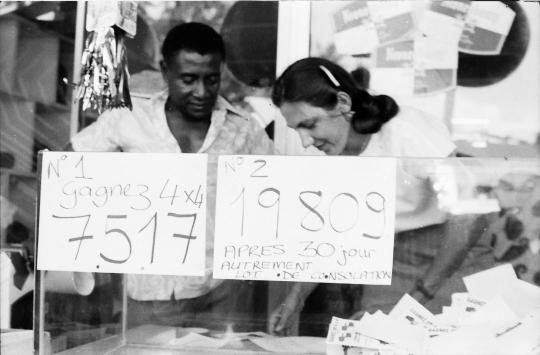 N° 1
gagnez 4x4
7.517
N° 2
19809
APRES 30 jour
AUTREMENT
LOT • DE CONSOLATION